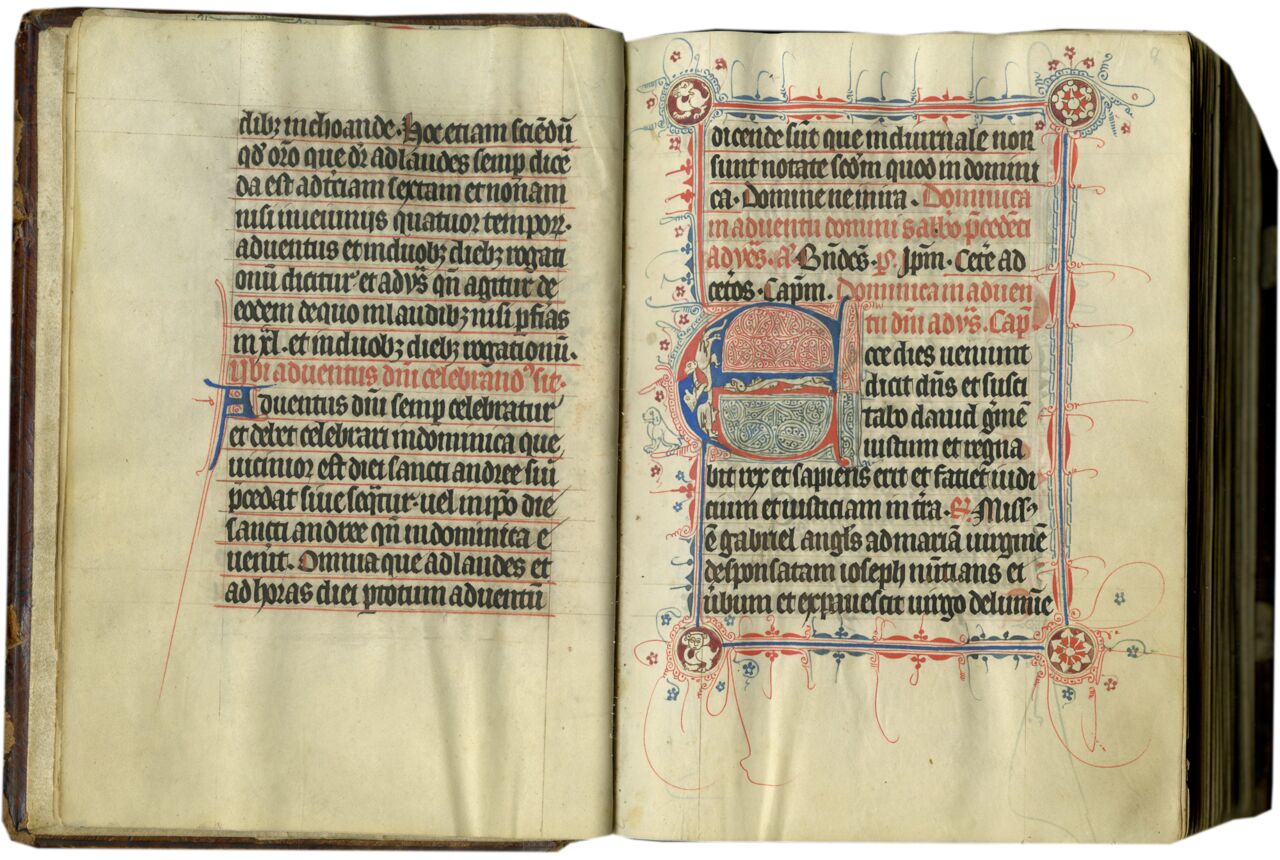 dib⁊ inchoande. Hoc etiam sciēdū
qd' or̄o que dr̄ ad laudes semp dicē
da est ad t'ciam sextam et nonam
nisi in ieiuniis quatuor tempor⁊.
aduentus et in duob⁊ dieb⁊ rogati
onū dicitur et ad vs̄ qn̄ agitur de
eodem de quo in laudib⁊ nisi p fias
in xl. et in duob⁊ dieb⁊ rogationū.
Ubi aduentus dn̄i celebrand' sit.
Aduentus dn̄i semp celebratur
et debet celebrari in dominica que
uicinior est diei sancti andree siu
p̄cedat siue seq̄tur. uel in ip̄o die
sancti andree qn̄ in dominica e
uen'it. Omnia que ad laudes et
ad horas diei p totum aduentū
dicende sūt que in diurnale non
sunt notate scd'm quod in domini
ca. Domine ne in ira. Dominica
in aduentu domini sabb'o p̄cedēti
ad vēs. a. Bn̄dc̄s. p̄. Ip̄m. Cet'e ad
cet'os. Cap̄m. Dominica in aduen
tu dn̄i ad vs̄. Cap̄.
Ecce dies ueniunt
dicit dn̄s et susci
tabo dauid g'mē
iustum et regna
bit rex et sapiens erit et faciet iudi
cium et iusticiam in t'ra. R̄. Miss'
ē gabriel angl's ad mariā uirginē
desponsatam ioseph nūtians ei
u'bum et expauescit uirgo de lumīe